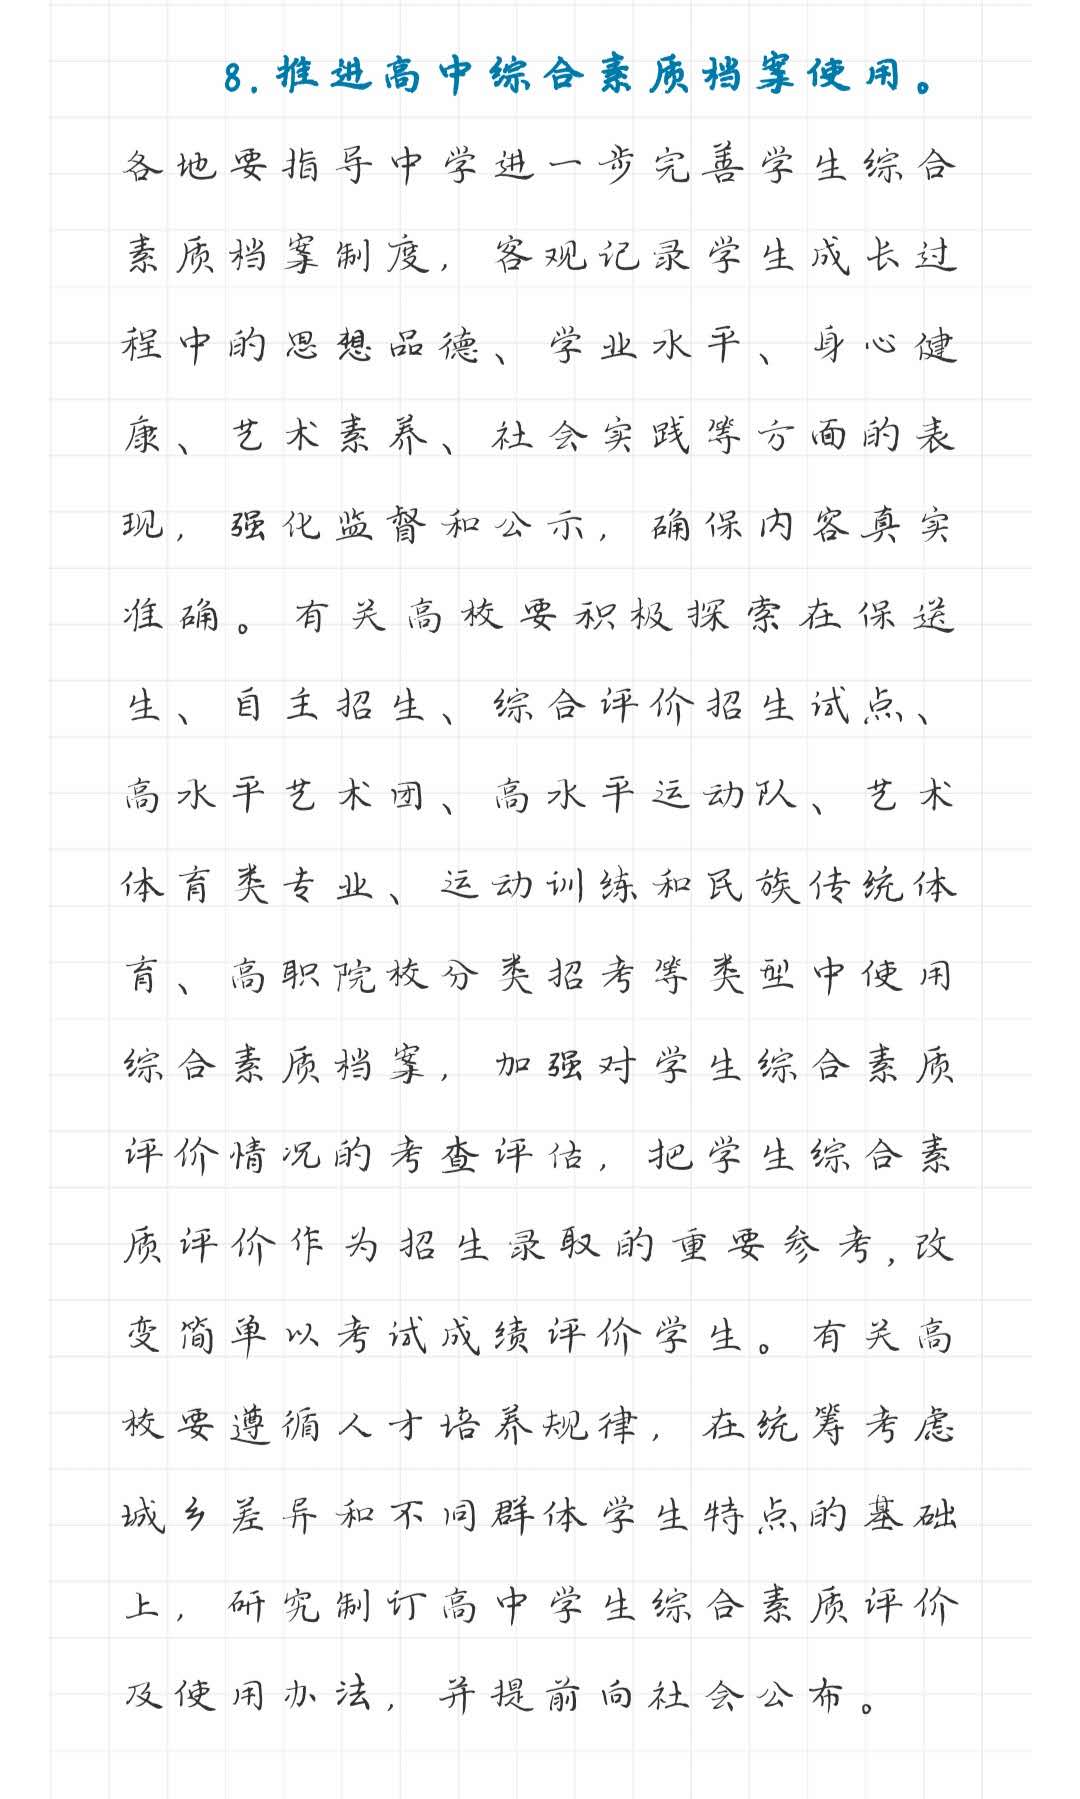 8.推进高中综合素质档案使用。
各地要指导中学进一步完善学生综合
素质档案制度,客观记录学生成长过
程中的思想品德、学业水平、身心健
康、艺术素养、社会实践等方面的表
现,强化监督和公示,确保内容真实
准确。有关高校要积极探索在保送
生、自主招生、综合评价招生试点、
高水平艺术团、高水平运动队、艺术
体育类专业、运动训练和民族传统体
育、高职院校分类招考等类型中使用
综合素质档案,加强对学生综合素质
评价情况的考查评估,把学生综合素
质评价作为招生录取的重要参考,改
变简单以考试成绩评价学生。有关高
校要遵循人才培养规律,在统筹考虑
城乡差异和不同群体学生特点的基础
上,研究制订高中学生综合素质评价
及使用办法,并提前向社会公布。